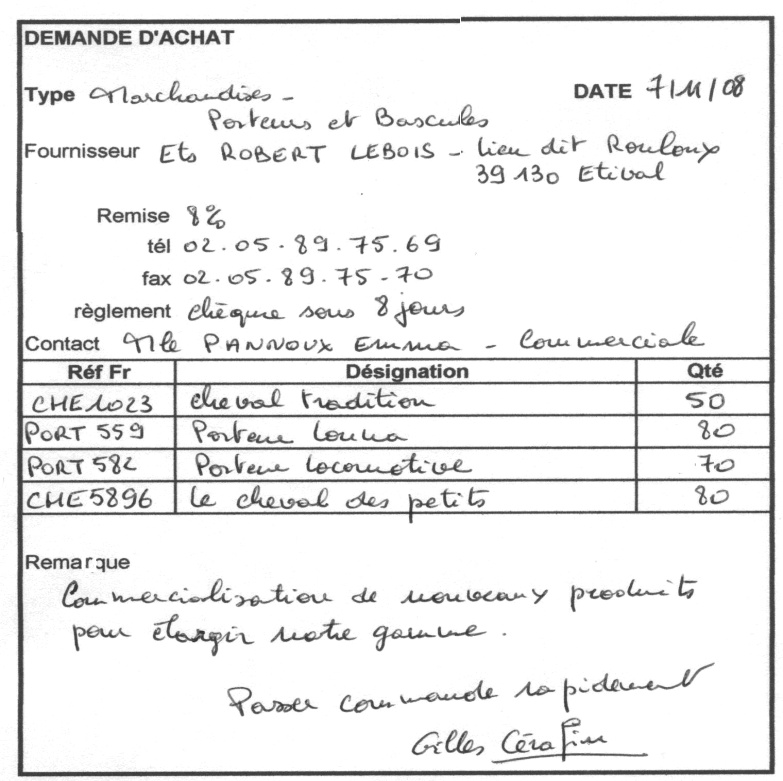 DEMANDE D'ACHAT
Type Marchandises - DATE 7/11/08
Porteurs et Bascules
Fournisseur Ets ROBERT LEBOIS - lieu dit Rouloux
39 130 Etival
Remise 8%
tél 02.05.89.75.69
fax 02.05.89.75.70
règlement chèque sous 8 jours
Contact Mle PANNOUX Emma - Commerciale
Réf Fr Désignation Qté
CHE1023 cheval tradition 50
PORT 559 Porteur Louna 80
PORT 582 Porteur locomotive 70
CHE5896 le cheval des petits 80
Remarque
Commercialisation de nouveaux produits
pour élargir notre gamme.
Passer commande rapidement
Gilles Cérafin